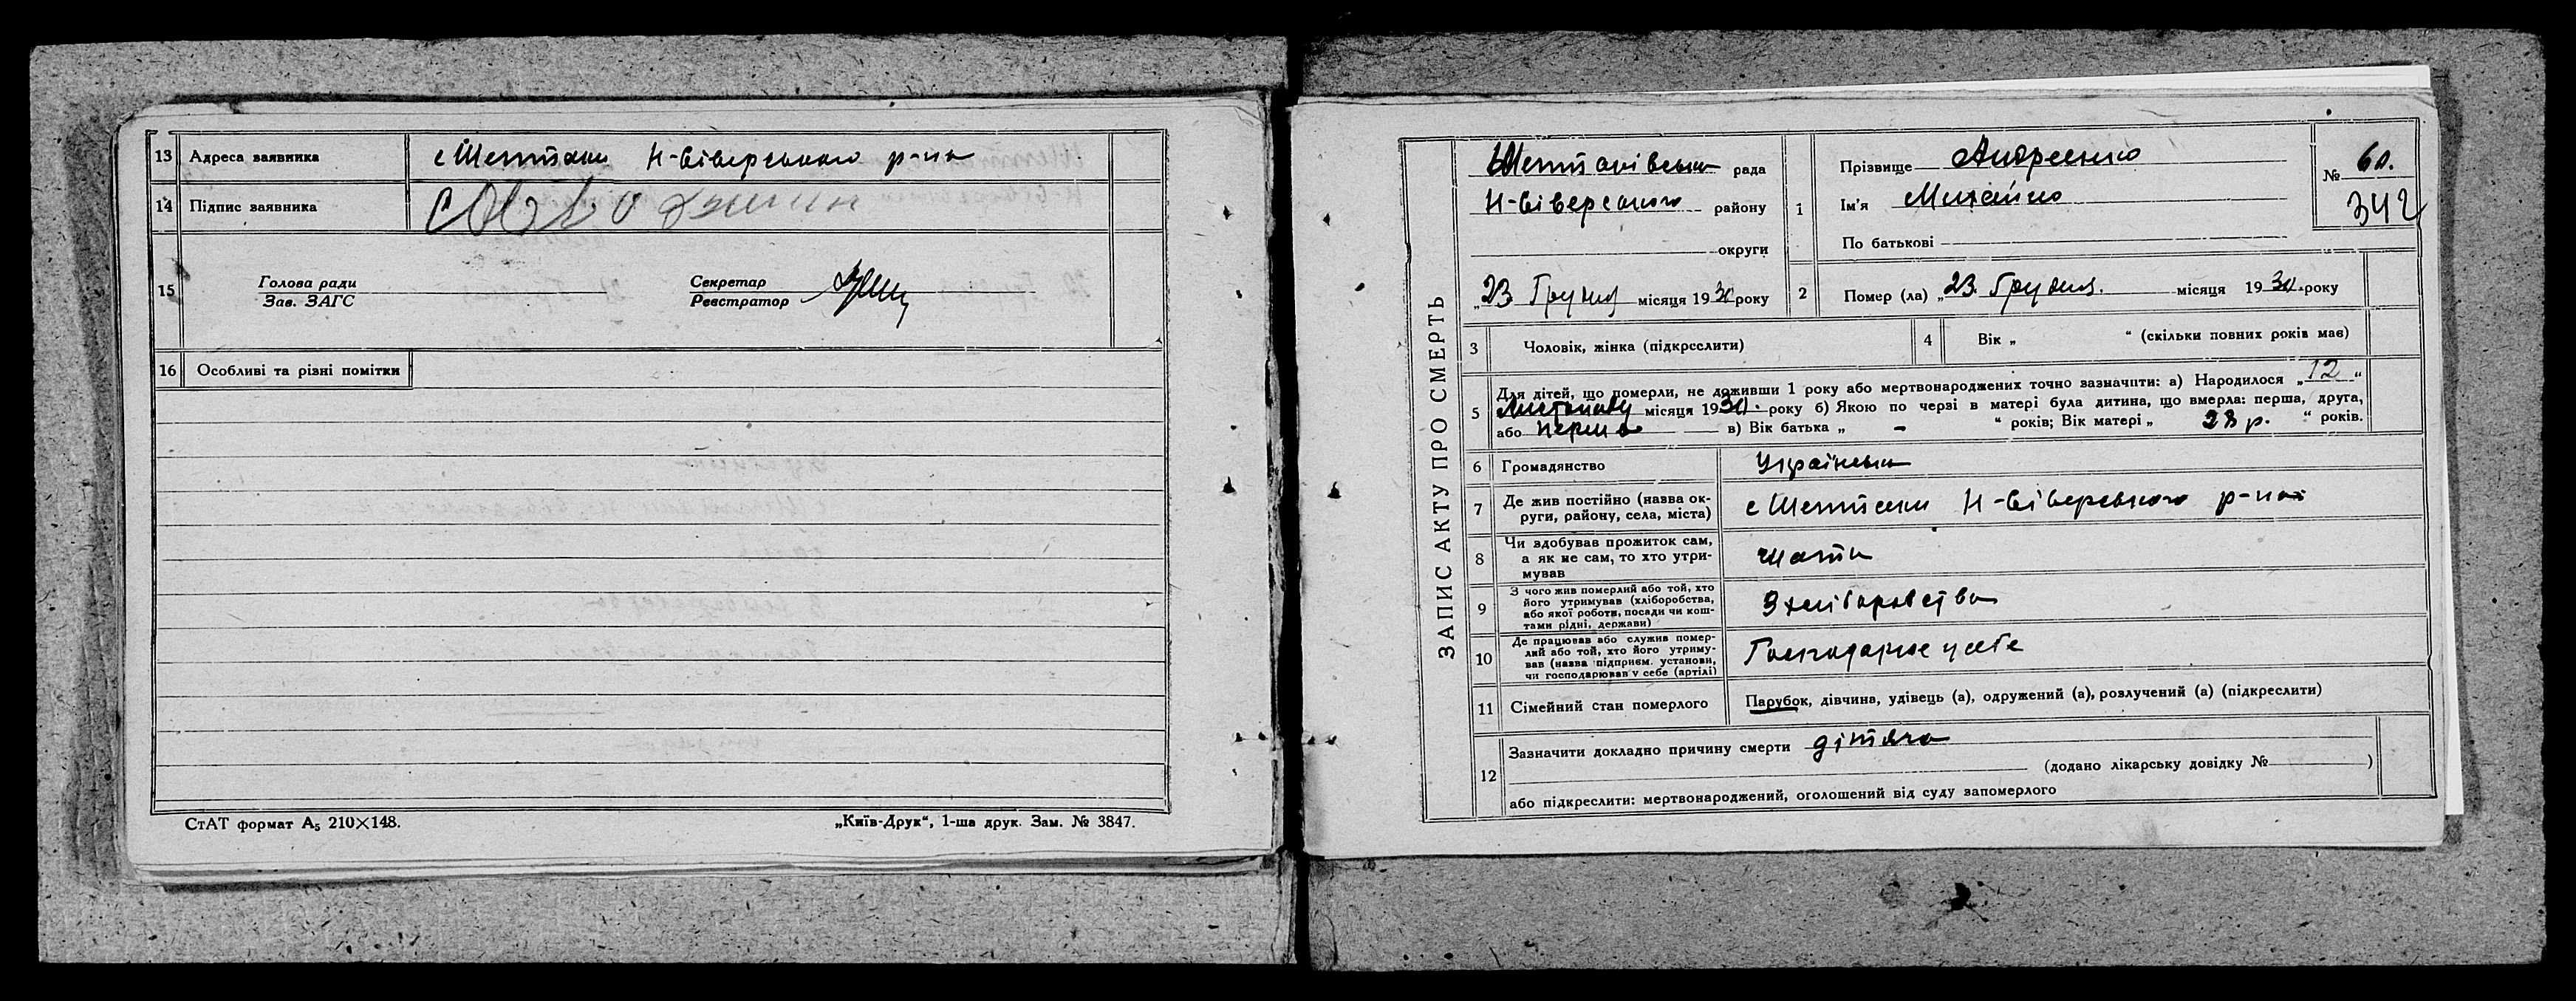 13 Адреса заявника с Шептаки Н-Сіверського р-на
14 Підпис заявника
15 Голова ради
Зав. ЗАГС
Секретар
Реєстратор
16 Особливі та різні помітки
СтАТ формат А₅ 210×148.
„Київ-Друк“, 1-ша друк. Зам. № 3847.
ЗАПИС АКТУ ПРО СМЕРТЬ
Шептаківська рада
Н-Сіверського району
округи
„23 Грудня місяця 1930 року
1 Прізвище Андреенко
Ім'я Михайло
По батькові
№ 60.
342
2 Помер (ла) „23 Грудня. місяця 1930 року
3 Чоловік, жінка (підкреслити)
4 Вік „ “ (скільки повних років має)
5 Для дітей, що померли, не доживши 1 року або мертвонароджених точно зазначити: а) Народилося „12“
Листопаду місяця 1930. року б) Якою по черзі в матері була дитина, що вмерла: перша, друга,
або перша в) Вік батька „ - “ років; Вік матері „ 23 р. “ років.
6 Громадянство Українська
7 Де жив постійно (назва ок-
руги, району, села, міста) с Шептаки Н-Сіверського р-на
8 Чи здобував прожиток сам,
а як не сам, то хто утри-
мував мати
9 З чого жив померлий або той, хто
його утримував (хліборобства,
або якої роботи, посади чи кош-
тами рідні, держави) З хліборобства
10 Де працював або служив помер-
лий або той, хто його утриму-
вав (назва підприєм. установи,
чи господарював у себе (артілі) Господарює у себе
11 Сімейний стан померлого Парубок, дівчина, удівець (а), одружений (а), розлучений (а) (підкреслити)
12 Зазначити докладно причину смерти дітяча
(додано лікарську довідку № )
або підкреслити: мертвонароджений, оголошений від суду запомерлого